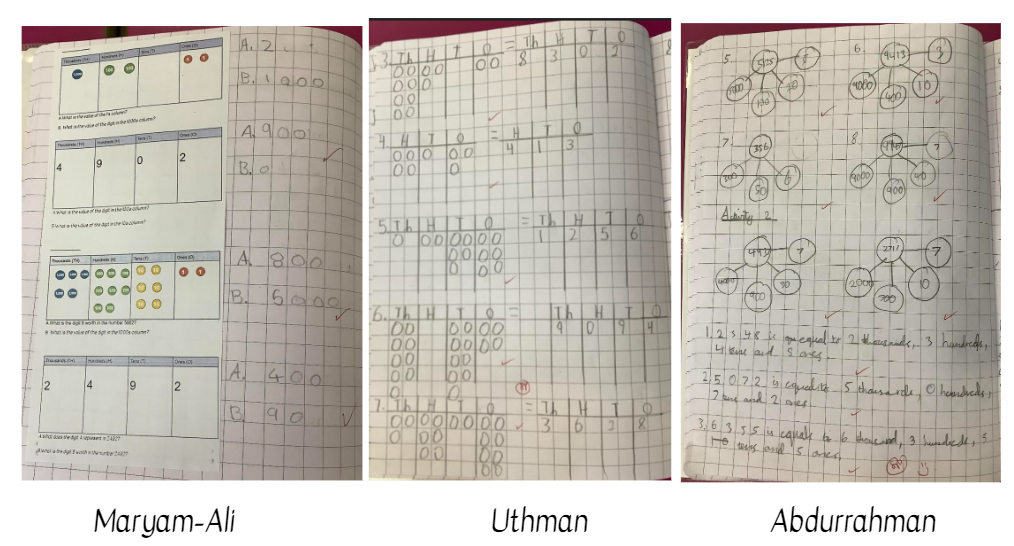 Thousands (TH) Hundreds (H) Tens (T) Ones (O)
1,000 100 100 1 1
A What is the value of the 1s column?
B. What is the value of the digit in the 1000s column?
A. 2
B. 1000
Thousands (TH) Hundreds (H) Tens (T) Ones (O)
4 9 0 2
A What is the value of the digit in the 100s column?
B What is the value of the digit in the 10s column?
A. 900
B. 0
Thousands (TH) Hundreds (H) Tens (T) Ones (O)
A What is the digit 8 worth in the number 5862?
B. What is the value of the digit in the 1000s column?
A. 800
B. 5000
Thousands (TH) Hundreds (H) Tens (T) Ones (O)
2 4 9 2
A What does the digit 4 represent in 2492?
B What is the digit 9 worth in the number 2492?
A. 400
B. 90
3. Th H T O = Th H T O
8 3 0 2
4. H T O = H T O
4 1 3
5. Th H T O = Th H T O
1 2 5 6
6. Th H T O = Th H T O
9 0 9 4
7. Th H T O = Th H T O
3 6 2 8
5. 5125 5
100
6. 9413 3
4000 400 10
7. 356
300 50 6
8. 7
9000 900 40
Activity 2
7
4000 900 90
2717 7
2000 700 10
1. 2 3 4 8 is equal to 2 thousands, 3 hundreds,
4 tens and 8 ones.
2. 5 0 7 2 is equal to 5 thousands, 0 hundreds,
7 tens and 2 ones.
3. 6 3 5 5 is equals to 6 thousand, 3 hundreds, 5
tens and 5 ones.
Maryam-Ali
Uthman
Abdurrahman